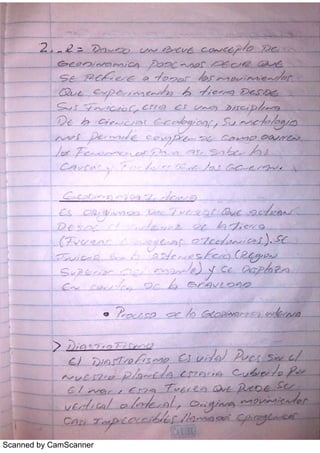 2._ R= Dando un Breve concepto De
Geodinamica Podemos Decir que
se Refiere a todos los movimientos
Que experimenta la tierra Desde
Sus Inicios, esta es una Disciplina
De la Ciencias Geologicas, Su metologia
nos permite comprender como ocurren
los Fenomenos Para asi saber las
Causas y
Geodinamica Interna
es originada por Fuerzas Que actuan
Desde el de la tierra
(Fuerzas o tectonicas). se
Inician en la Astenosfera (Region
Superior del manto) y se Desplaza
en contra De la Gravedad
• Proceso de la Geodinamica interna
> Diastrofismo
el Diastrofismo es vital Pues sin el
nuestro planeta estaria Cubierto Por
El mar, esta Fuerza que puede ser
vertical o lateral, origina movimientos
Casi Imperceptibles llamados epirogenicos
Scanned by CamScanner